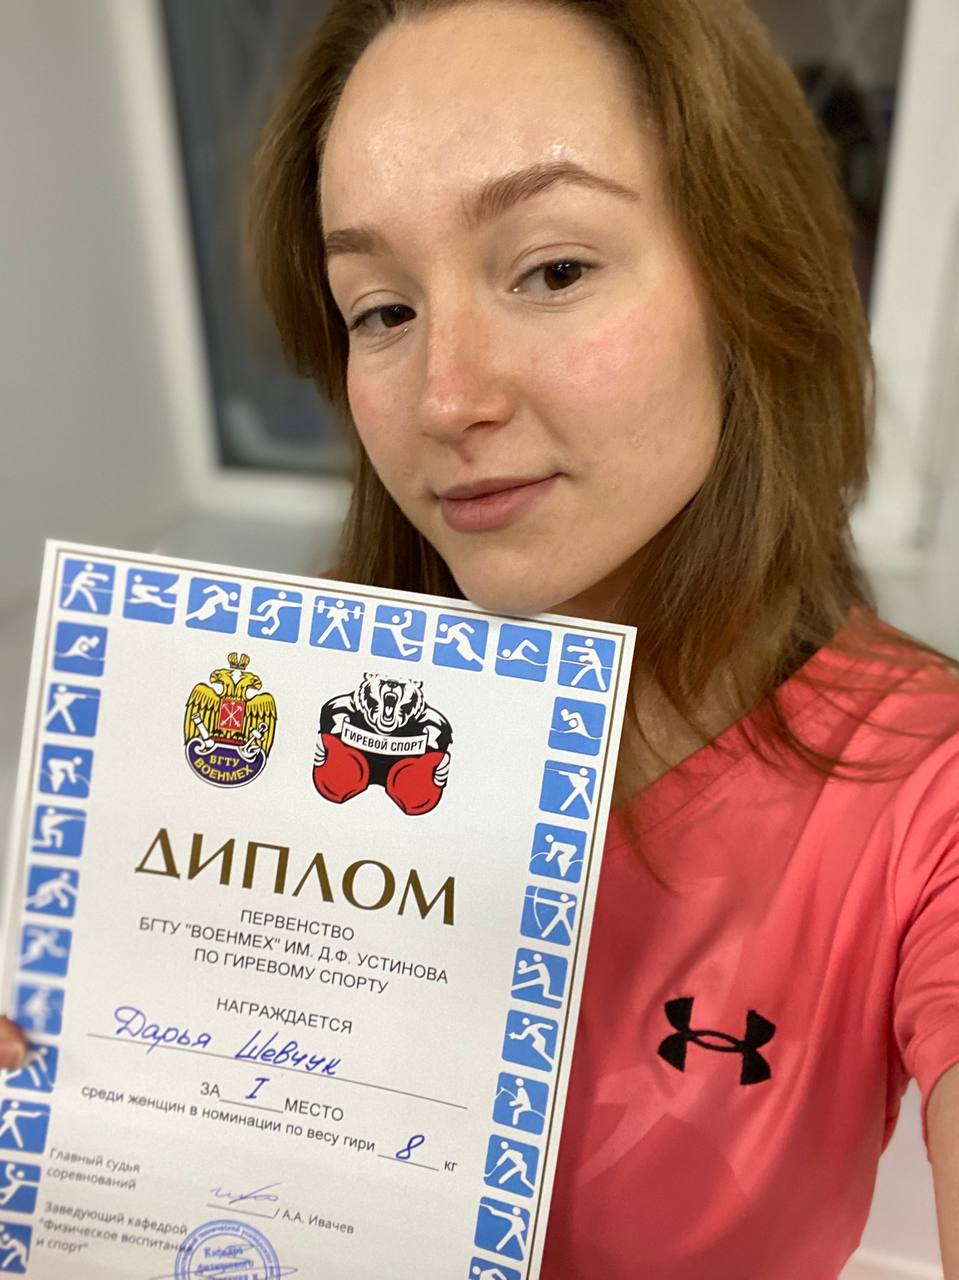 БГТУ
ВОЕНМЕХ
ГИРЕВОЙ СПОРТ
ДИПЛОМ
ПЕРВЕНСТВО
БГТУ "ВОЕНМЕХ" ИМ. Д.Ф. УСТИНОВА
ПО ГИРЕВОМУ СПОРТУ
НАГРАЖДАЕТСЯ
Дарья Шевчук
ЗА I МЕСТО
среди женщин в номинации по весу гири 8 кг
Главный судья
соревнований
/ А.А. Ивачев
Заведующий кафедрой
"Физическое воспитание
и спорт"
Кафедра